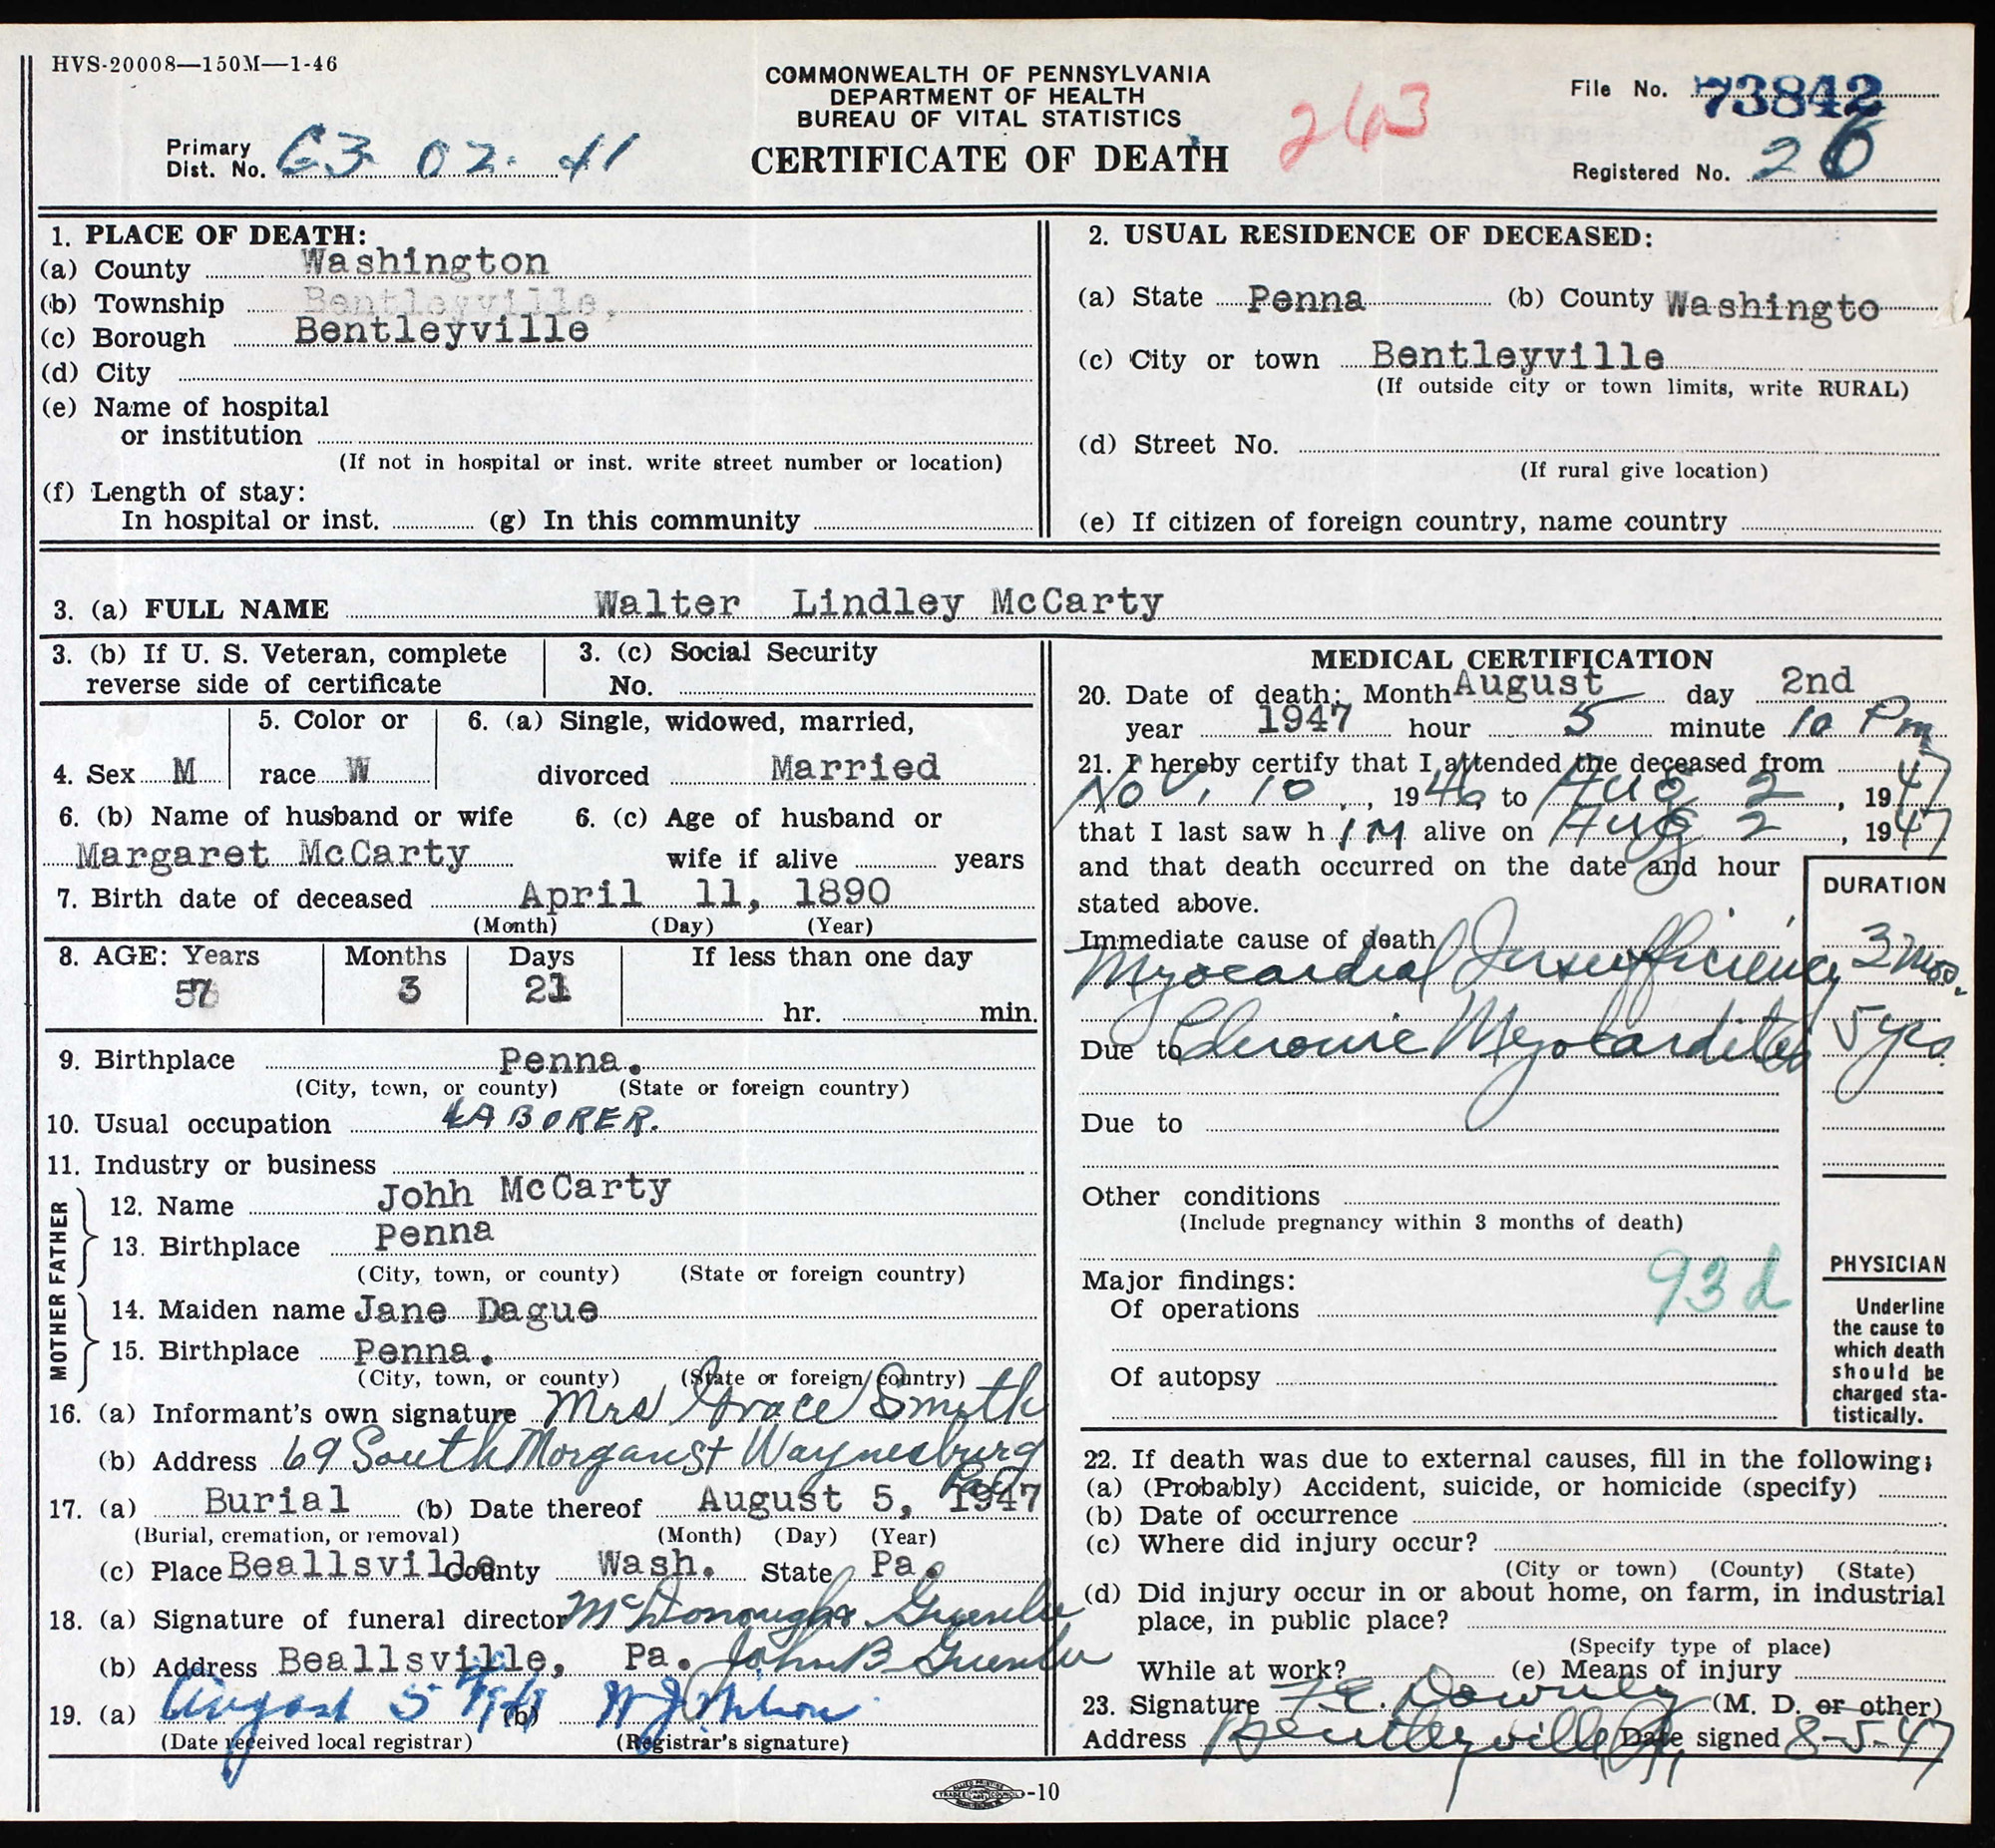 HVS-20008—150M—1-46
COMMONWEALTH OF PENNSYLVANIA
DEPARTMENT OF HEALTH
BUREAU OF VITAL STATISTICS
CERTIFICATE OF DEATH
263
File No. 73842
Registered No. 26
Primary
Dist. No. 63 02 41
1. PLACE OF DEATH:
(a) County Washington
(b) Township Bentleyville,
(c) Borough Bentleyville
(d) City
(e) Name of hospital
or institution
(If not in hospital or inst. write street number or location)
(f) Length of stay:
In hospital or inst. (g) In this community
2. USUAL RESIDENCE OF DECEASED:
(a) State Penna (b) County Washingto
(c) City or town Bentleyville
(If outside city or town limits, write RURAL)
(d) Street No.
(If rural give location)
(e) If citizen of foreign country, name country
3. (a) FULL NAME Walter Lindley McCarty
3. (b) If U. S. Veteran, complete
reverse side of certificate
3. (c) Social Security
No.
4. Sex M
5. Color or
race W
6. (a) Single, widowed, married,
divorced Married
6. (b) Name of husband or wife
Margaret McCarty
6. (c) Age of husband or
wife if alive years
7. Birth date of deceased April 11, 1890
(Month) (Day) (Year)
8. AGE: Years Months Days If less than one day
57 3 21 hr. min.
9. Birthplace Penna.
(City, town, or county) (State or foreign country)
10. Usual occupation LABORER.
11. Industry or business
FATHER
12. Name Johh McCarty
13. Birthplace Penna
(City, town, or county) (State or foreign country)
MOTHER
14. Maiden name Jane Dague
15. Birthplace Penna.
(City, town, or county) (State or foreign country)
16. (a) Informant's own signature Mrs Grace Smith
(b) Address 69 South Morgan St Waynesburg
Pa
17. (a) Burial (b) Date thereof August 5, 1947
(Burial, cremation, or removal) (Month) (Day) (Year)
(c) Place Beallsville County Wash. State Pa.
18. (a) Signature of funeral director McDonough &
(b) Address Beallsville, Pa. John B
19. (a) August 5 (b) W J
(Date received local registrar) (Registrar's signature)
MEDICAL CERTIFICATION
20. Date of death: Month August day 2nd
year 1947 hour 5 minute 10 Pm
21. I hereby certify that I attended the deceased from
Nov. 10, 1946 to Aug 2, 1947
that I last saw him alive on Aug 2, 1947
and that death occurred on the date and hour
stated above.
DURATION
Immediate cause of death
Myocardial Insufficiency 3 mos.
Due to Chronic Myocarditis 5 yrs
Due to
Other conditions
(Include pregnancy within 3 months of death)
Major findings: 93d
Of operations
Of autopsy
PHYSICIAN
Underline
the cause to
which death
should be
charged sta-
tistically.
22. If death was due to external causes, fill in the following;
(a) (Probably) Accident, suicide, or homicide (specify)
(b) Date of occurrence
(c) Where did injury occur?
(City or town) (County) (State)
(d) Did injury occur in or about home, on farm, in industrial
place, in public place?
(Specify type of place)
While at work? (e) Means of injury
23. Signature F C. Downey (M. D. or other)
Address Bentleyville, Pa, Date signed 8-5-47
-10